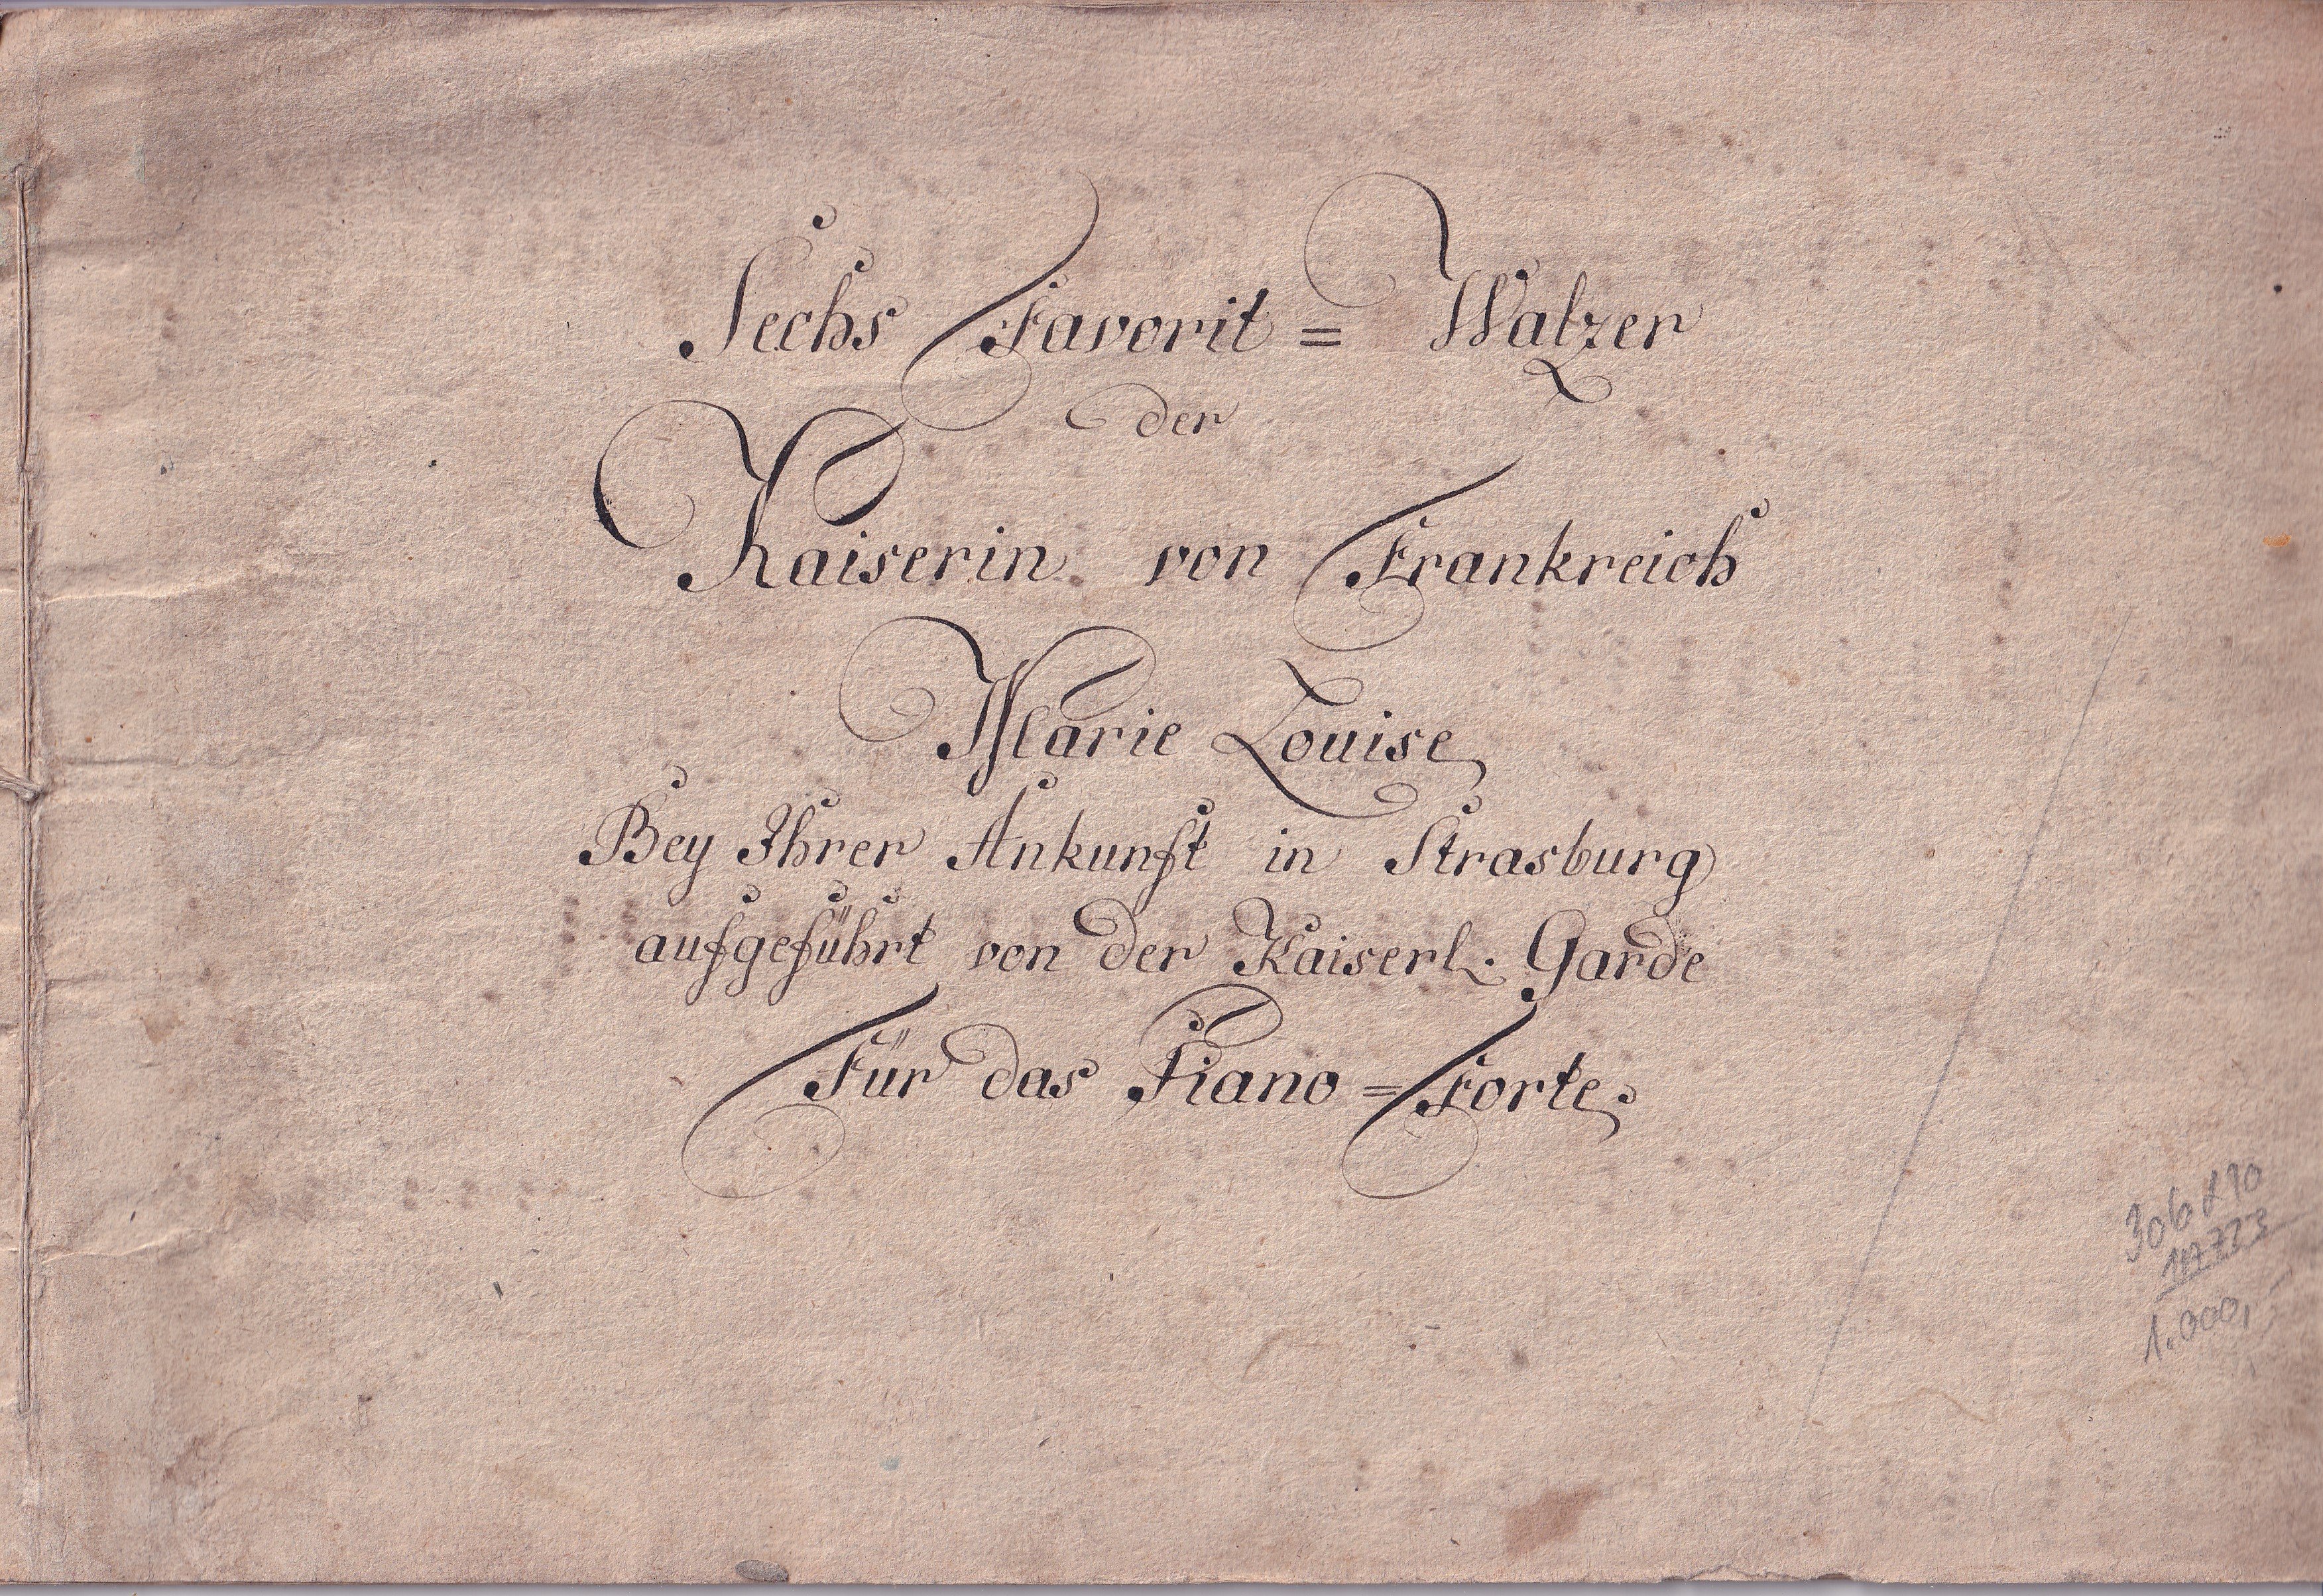 Sechs Favorit = Walzer
der
Kaiserin von Frankreich
Marie Louise
Bey Ihrer Ankunft in Strasburg
aufgeführt von der Kaiserl. Garde
Für das Piano = Forte.
1.000,